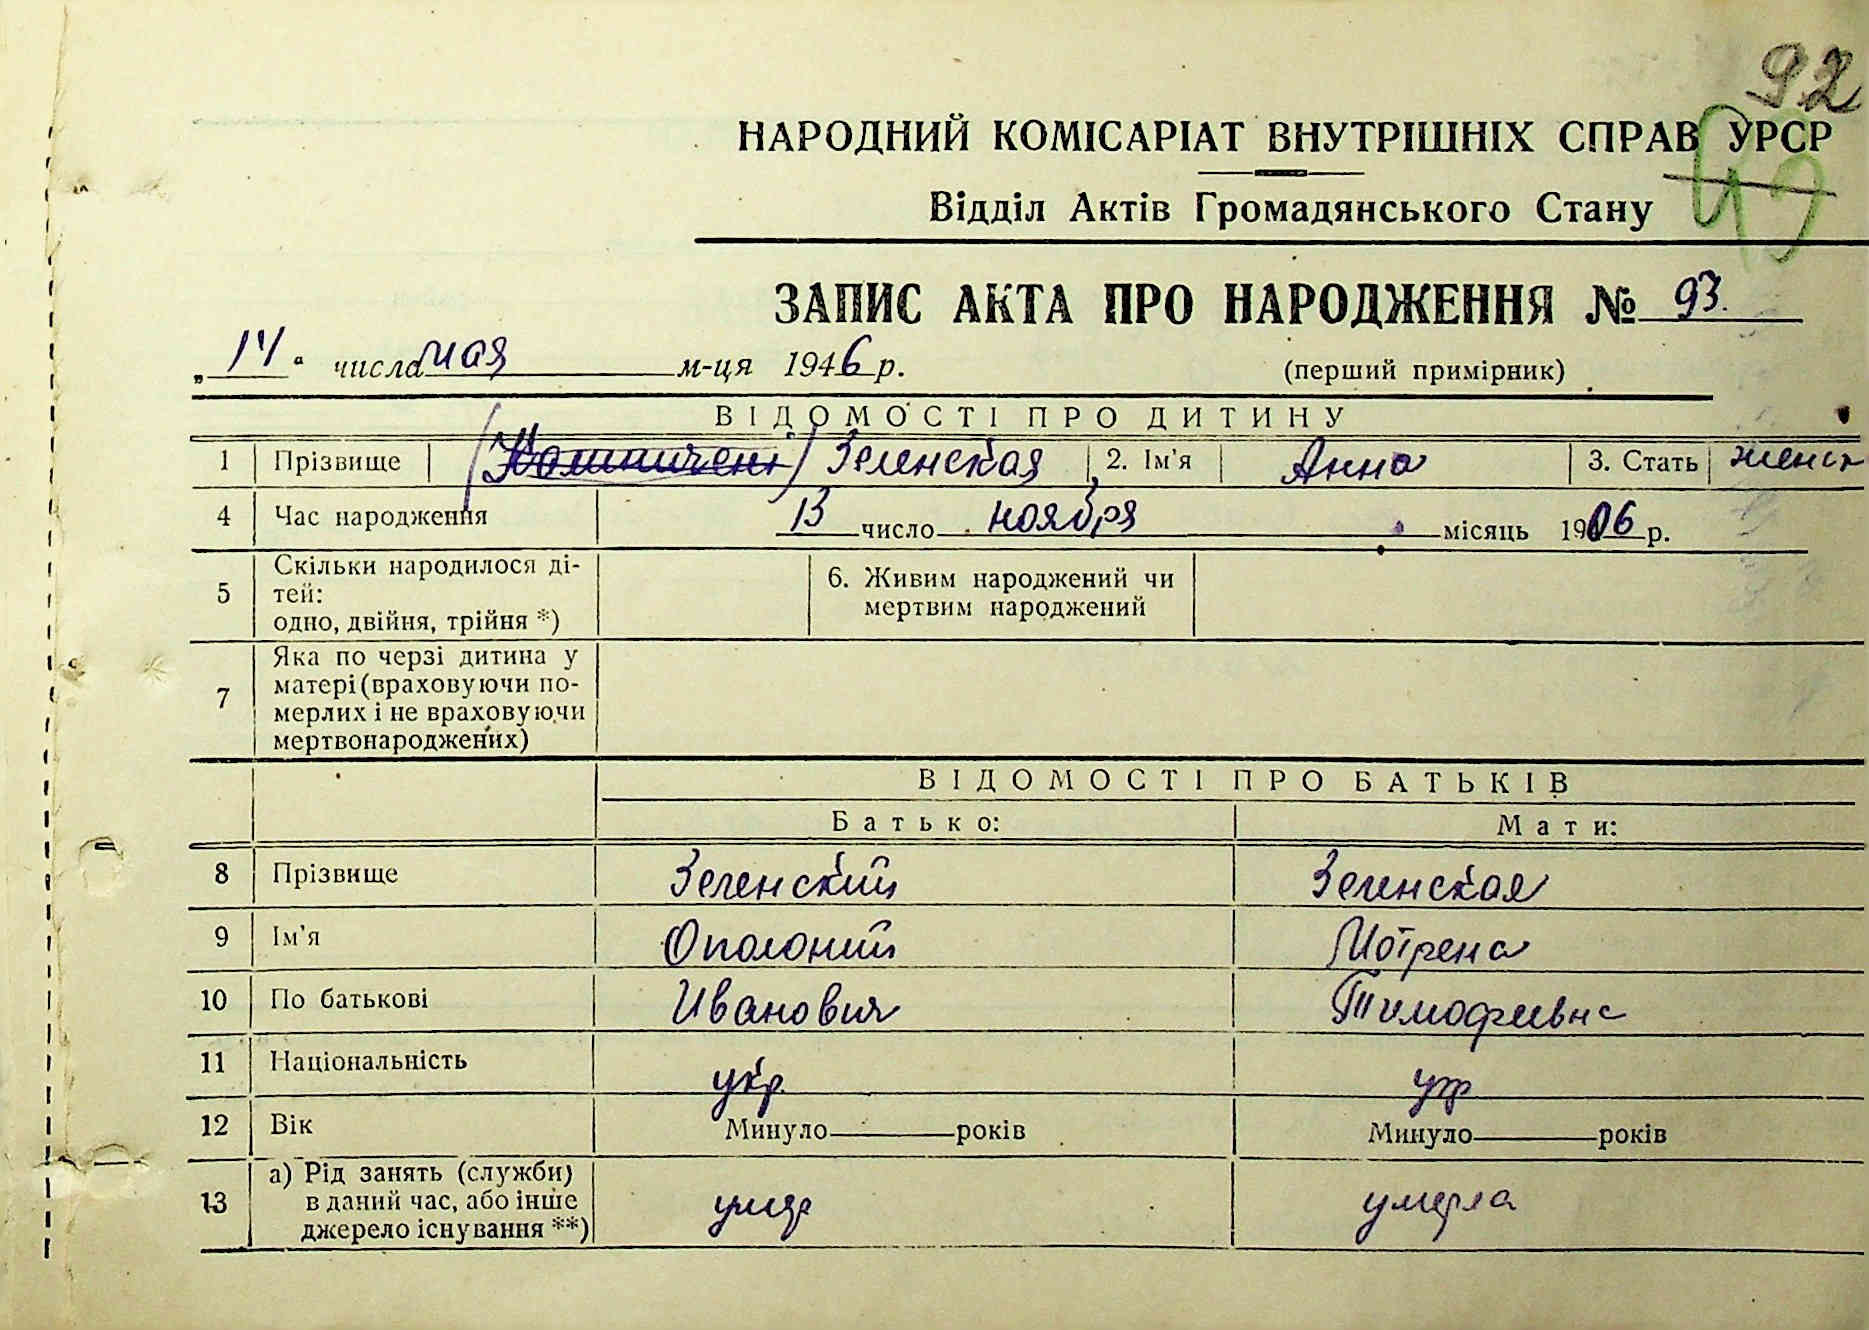 92
НАРОДНИЙ КОМІСАРІАТ ВНУТРІШНІХ СПРАВ УРСР
Відділ Актів Громадянського Стану
ЗАПИС АКТА ПРО НАРОДЖЕННЯ № 93.
„14“ числа мая м-ця 1946 р. (перший примірник)
ВІДОМОСТІ ПРО ДИТИНУ
1 Прізвище Зеленская 2. Ім’я Анна 3. Стать женск
4 Час народження 13 число ноября місяць 1906 р.
5 Скільки народилося ді-
тей:
одно, двійня, трійня *)
6. Живим народжений чи
мертвим народжений
7 Яка по черзі дитина у
матері (враховуючи по-
мерлих і не враховуючи
мертвонароджених)
ВІДОМОСТІ ПРО БАТЬКІВ
Батько: Мати:
8 Прізвище Зеленский Зеленская
9 Ім’я Ополоний Мотрена
10 По батькові Иванович Тимофеевна
11 Національність укр укр
12 Вік Минуло років Минуло років
13 а) Рід занять (служби)
в даний час, або інше
джерело існування **)
умер умерла